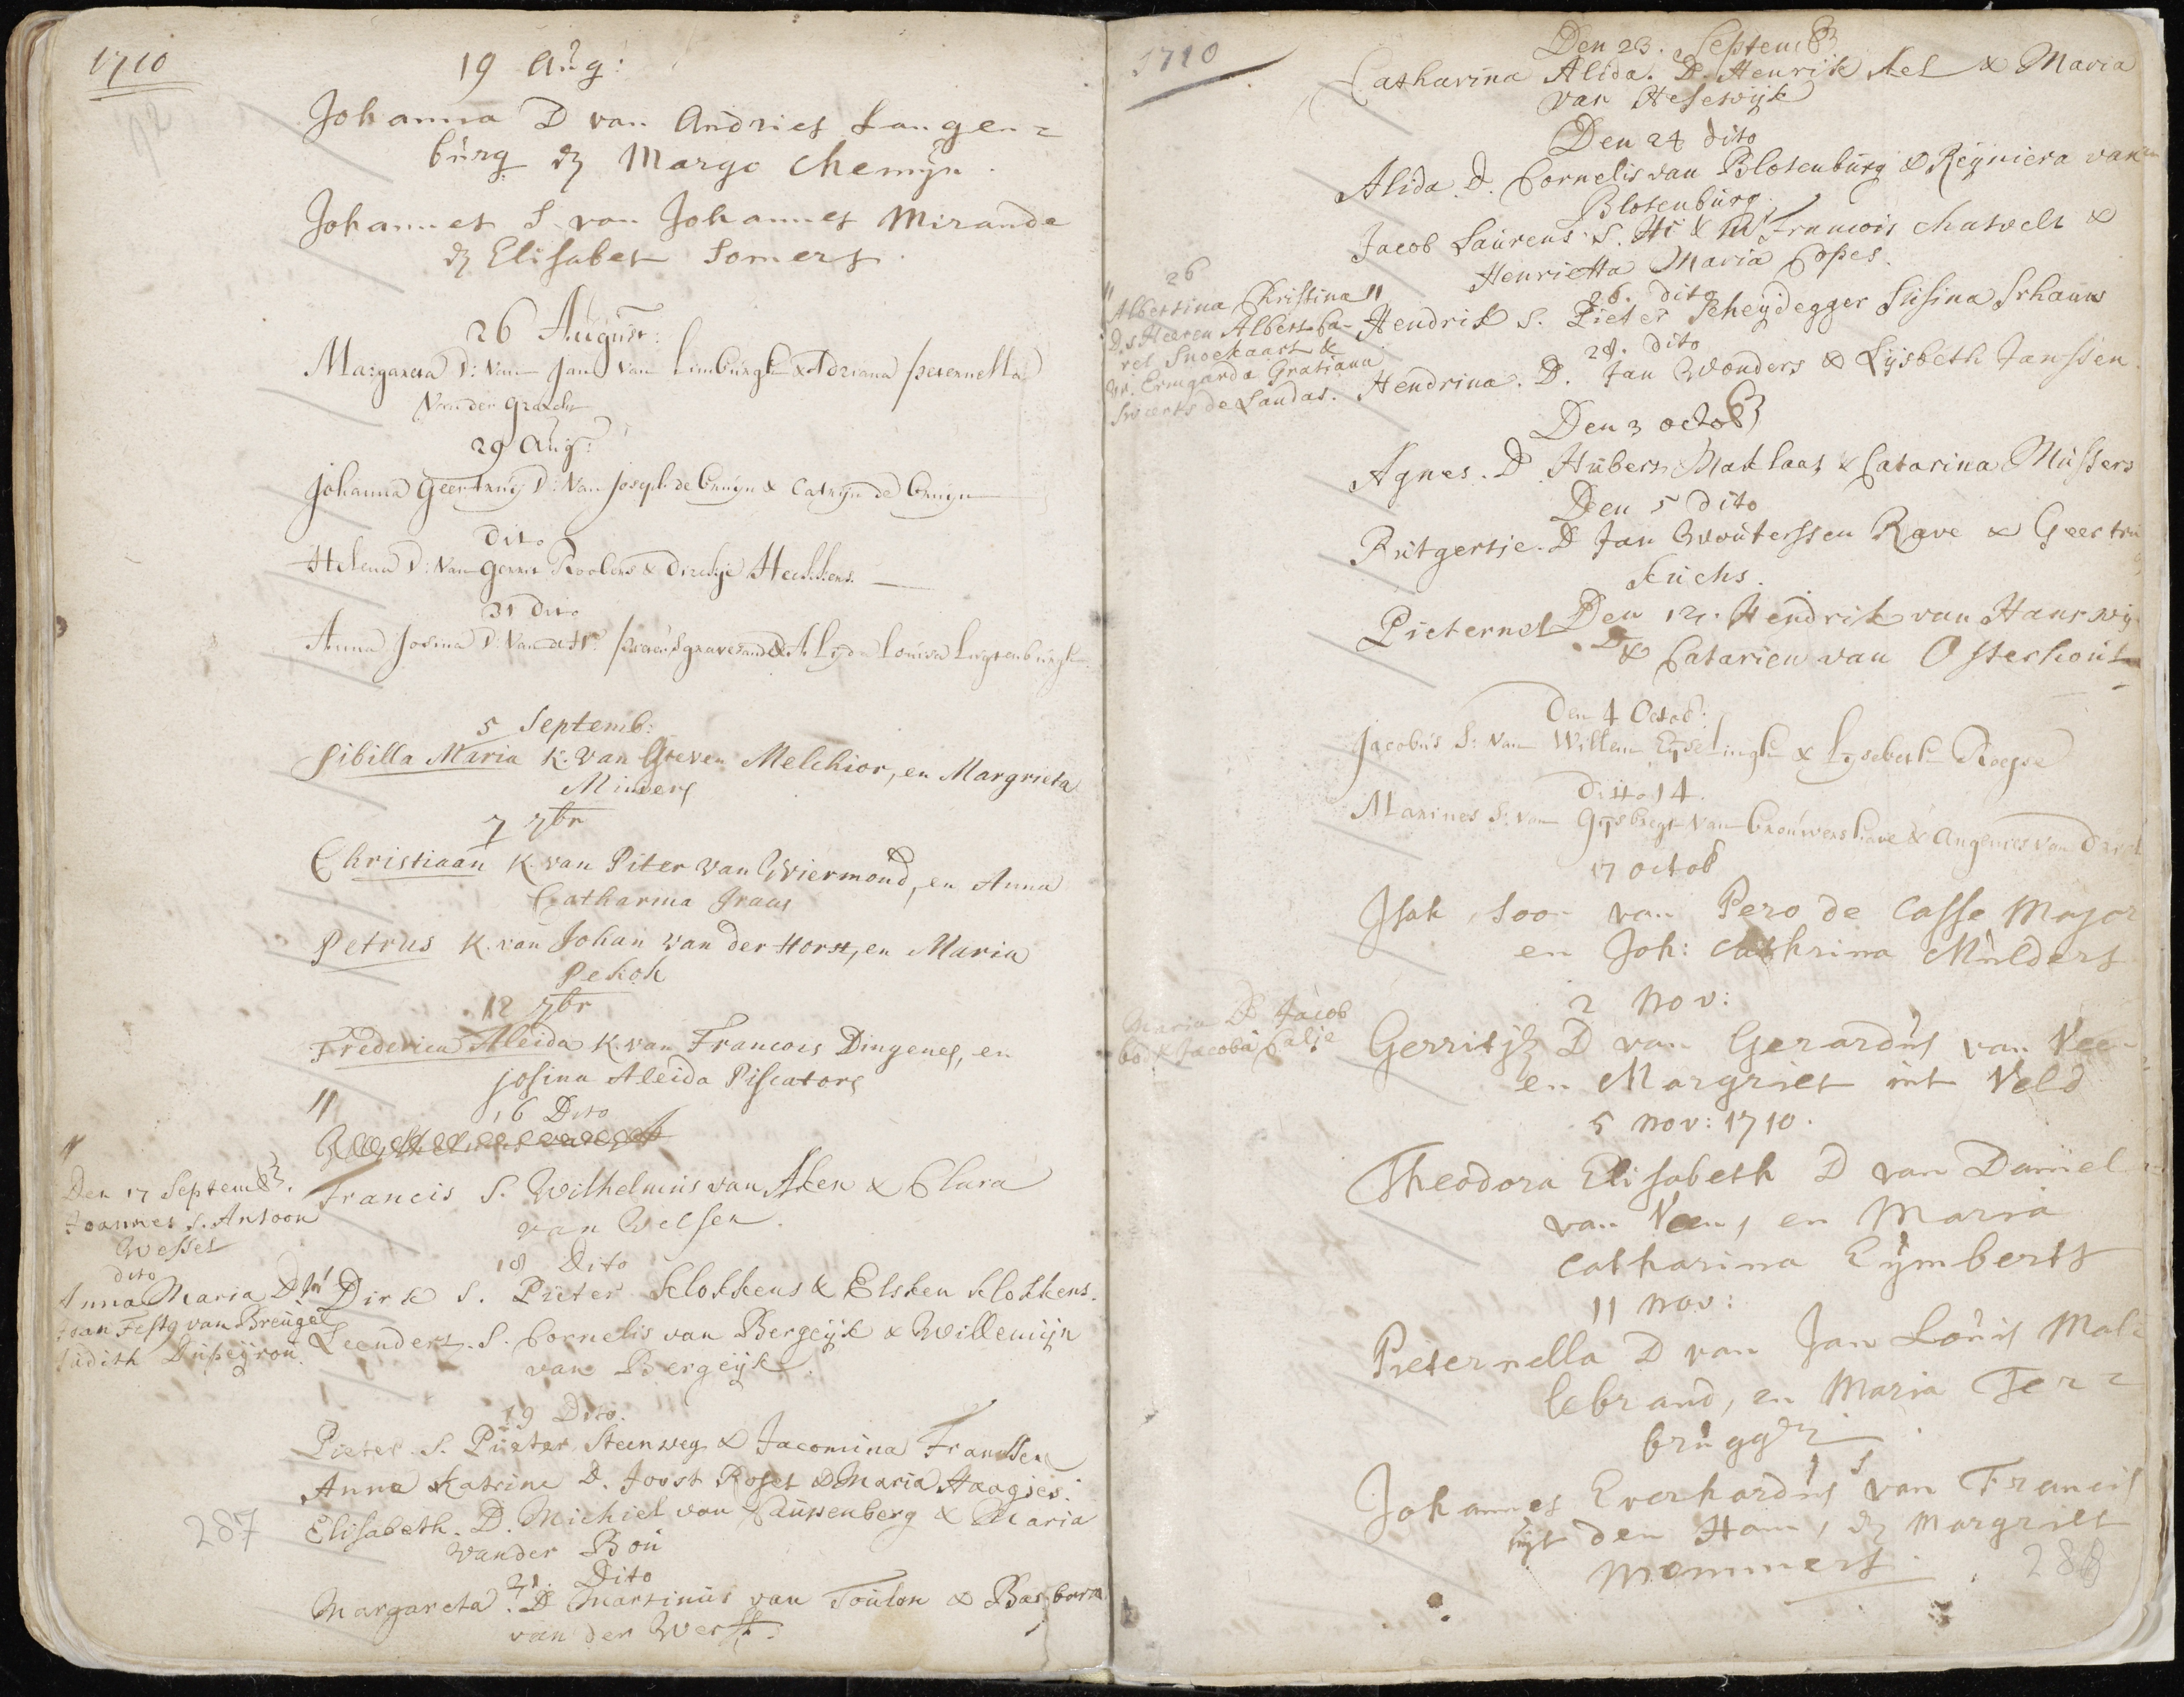 1710
19 Aug:
Johanna D van Andries Langen=
burg & Margo Chemijn.
Johannes S. van Johannes Mirande
& Elisabet Somers.
26 August:
Margareta D: Van Jan Van Limburgh & Adriana Peternella
Van der Gracht
29 Aug:
Johanna Geertruij D: Van Joseph de bruijn & Catrijn de bruijn
Dito
Helena D: Van Gerrit Roolens & Dirckje Heckkens.
31 Dito
Anna Josina D: Van Alida Louisa Luijtenburgh
5 Septemb:
Sibilla Maria K. van Greven Melchior, en Margrieta
Minders
7 7br
Christiaan K. van Piter van Wiermond, en Anna
Catharina Graas
Petrus K. van Johan van der Horst, en Maria
Pekok
12 7br
Frederica Aleida K. van Francois Dingenes, en
Josina Aleida Piscators
16 Dito
Francis S. Wilhelmus van Aken & Clara
van Welsen.
Den 17 Septemb.
Joannes S. Antoon
Wessel
dito
Anna Maria D.
Joan Festg van Breugel
Judith Dupeijrou.
18 Dito
Dirk S. Pieter Klokkens & Elsken Klokkens.
Leendert. S. Cornelis van Bergeijk & Willemijn
van Bergeijk.
19 Dito.
Pieter S. Pieter Steenweg & Jacomina Franssen
Anna Katrine D. Joost Roset & Maria Haagjes.
Elisabeth. D. Michiel van Cauwenberg & Maria
vander Bou
21. Dito
Margareta. D Martinus van Toulon & Barbara
van der Werff.
287
1710
Den 23. Septemb
Catharina Alida. D. Henrik Kel & Maria
van Heeswijk
Den 24 dito
Alida. D. Cornelis van Blotenburg & Reijniera van
Blotenburg.
Jacob Laurens S. Francois Chatvelt &
Henrietta Maria Copes.
26
Albertina Christina
D. s Heeren Albert Ca-
rel Snoekaart &
Vr. Ermgarda Gratiana
Sweerts de Landas.
26. dito
Hendrik S. Pieter Scheijdegger Susina Schauw
28. dito
Hendrina. D. Jan Wonders & Lijsbeth Janssen.
Den 3 octob
Agnes. D Hubert Maklaas & Catarina Mussers
Den 5 Dito
Rutgertie. D Jan Wouterssen Rave & Geertru
Kuchs.
Pieternel Den 12. Hendrik van Hanswij
D & Catarien van Osterhout
Den 4 Octob:
Jacobus S: Van Willem Eijselingh & Lijsebeth Roepse
Ditto 14.
Marines S: van Gijsbregt van brouwershave & Angenies van
17 octob
Isak, Soon van Pero de Casse Major
en Joh: Cathrina Mulders
2 Nov:
Maria D Jacob
Bo & Jacoba Calje
Gerritje D van Gerardus van Vee-
en Margriet int Veld
5 Nov: 1710.
Theodora Elisabeth D van Daniel
van Veen, en Maria
Catharina Eijmberts
11 Nov:
Pieternella D van Jan Louis Mal
lebrand, en Maria Ter=
brugge
Johannes Everhardus S van Francis
uijt den Ham, & Margriet
Mommers.
288